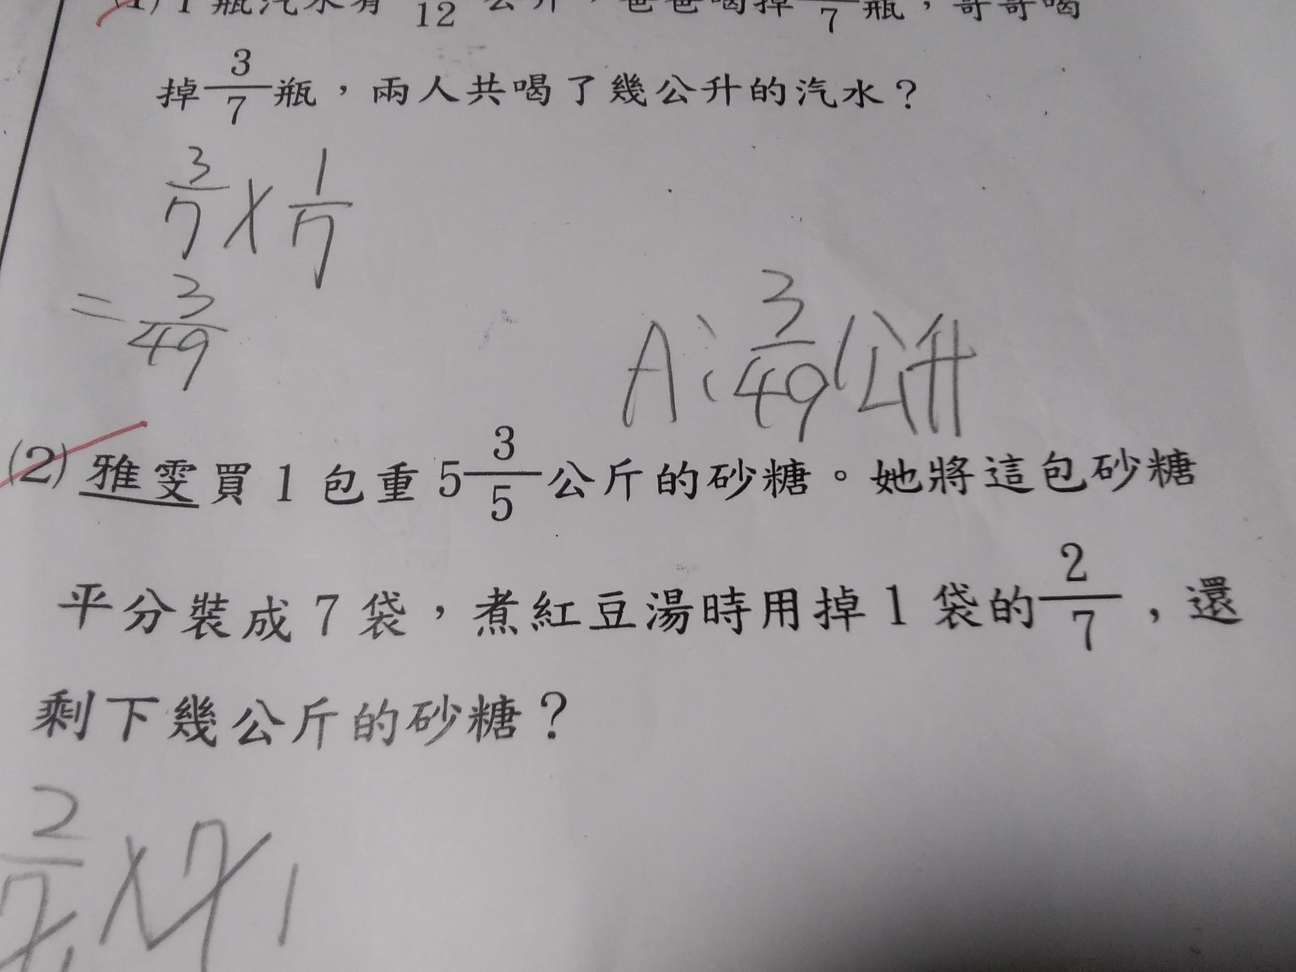 (1) 1 瓶汽水有 /12 公升，爸爸喝掉 /7 瓶，哥哥喝
掉 3/7 瓶，兩人共喝了幾公升的汽水？
3/7 × 1/7
= 3/49
A: 3/49 公升
(2) 雅雯買 1 包重 5 3/5 公斤的砂糖。她將這包砂糖
平分裝成 7 袋，煮紅豆湯時用掉 1 袋的 2/7，還
剩下幾公斤的砂糖？
2/7 × 7 1